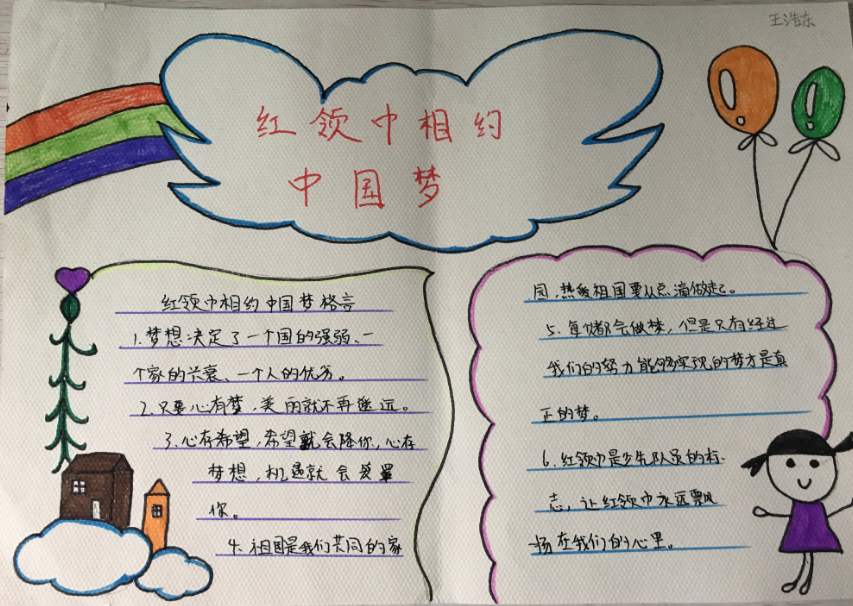 王浩东
红领巾相约
中国梦
红领巾相约中国梦格言
1.梦想决定了一个国的强弱、一
个家的兴衰、一个人的优劣。
2.只要心有梦,美丽就不再遥远。
3.心存希望,希望就会降你,心存
梦想,机遇就会笼罩
你。
4.祖国是我们共同的家
园,热爱祖国要从点滴做起。
5.每次都会做梦,但是只有经过
我们的努力能够实现的梦才是真
正的梦。
6.红领巾是少先队员的标
志,让红领巾永远飘
扬在我们的心里。